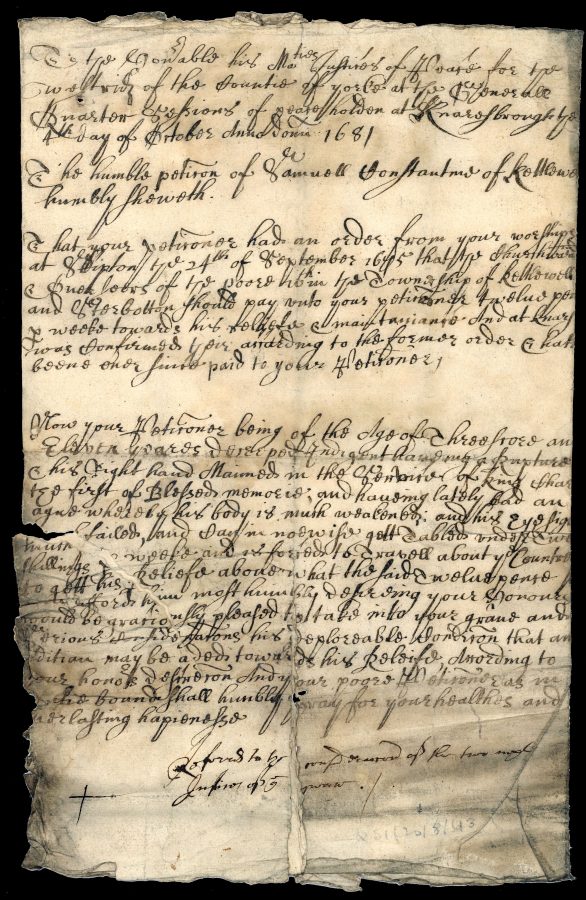 To the Honrable his Maties Justices of Peace for the
westridg of the Countie of yorke at the Generall
Quarter Sessions of peace holden at Knaresbrough the
4th day of October Anno domi 1681
The humble peticon of Samuell Constantine of Kettlewe
humbly sheweth.
That your Peticoner had an order from your worships
at Skipton the 24th of September 1675 that the Churchward
& Overseers of the poore wthin the Townshipp of Kettlewell
and Starbotton should pay unto your peticoner Twelve pen
p weeke towards his reliefe & maintainance And at Knars
was Confirmed their according to the former order & hath
beene ever since paid to your Peticoner,
Now your Peticoner being of the Age of Threescore an
Eleven yeares decreped Indigent haveing a Rupture
& his right hand Maimed in the Service of King Char
the first of Blessed memorie; and haveing lately had an
ague whereby his body is much weakened; and his Eyesig
much failed, and Can in noewise gett Tabled under Two
shillings p weeke and is forced to Travell about ye Countre
to gett his Reliefe above what the said Twelve pence
will afford him most humbly desireing your Honours
would be graciously pleased to take into your grave and
serious Considerations his deploreable Condicon that an
addition may be aded towards his Releife According to
your honors discrecon And your poore Peticoner as in
dutie bound shall humbly pray for your healthes and
everlasting hapienesse
Referred to the consideracon of the two next
Justices of ye peace
QS1/20/8/43